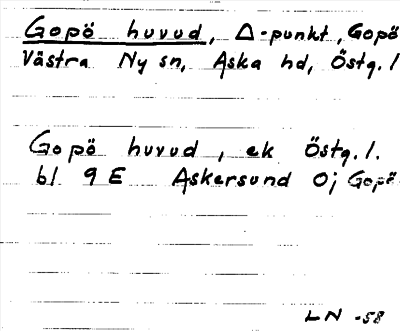 Gopö huvud, Δ-punkt, Gopö
Västra Ny sn, Aska hd, Östg. l
Gopö huvud, ek Östg. l.
bl 9 E Askersund Oj Gopö
LN -58